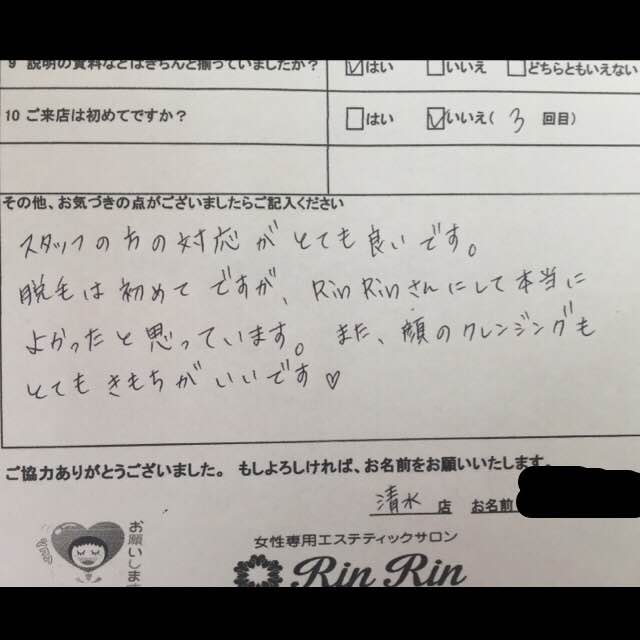 9 説明の資料などはきちんと揃っていましたか? はい いいえ どちらともいえない
10 ご来店は初めてですか? はい いいえ( 3 回目)
その他、お気づきの点がございましたらご記入ください
スタッフの方の対応がとても良いです。
脱毛は初めてですが、RinRinさんにして本当に
よかったと思っています。また、顔のクレンジングも
とてもきもちがいいです♡
ご協力ありがとうございました。もしよろしければ、お名前をお願いいたします。
清水 店 お名前
お願いします
女性専用エステティックサロン
Rin Rin